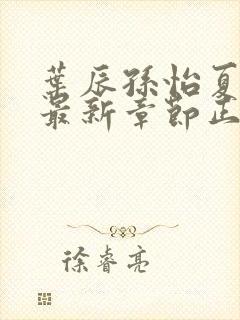 葉辰孫怡夏
最新章節正
徐睿亮